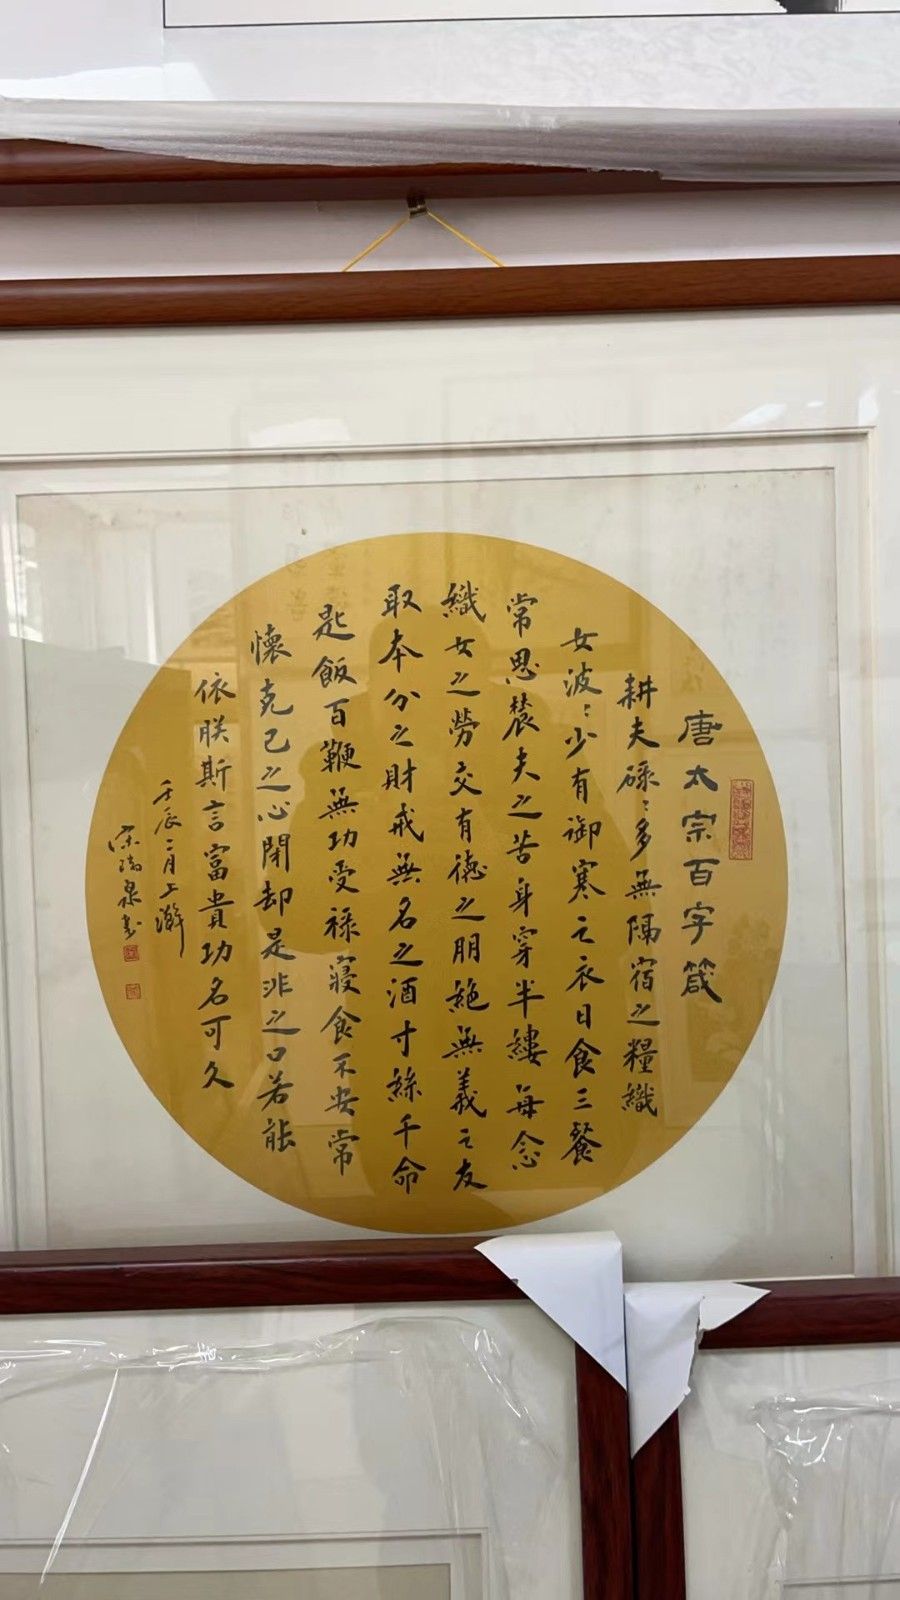 唐太宗百字箴
耕夫碌〻多無隔宿之糧織
女波〻少有御寒之衣日食三餐
常思農夫之苦身穿半縷每念
織女之勞交有德之朋絕無義之友
取本分之財戒無名之酒寸絲千命
匙飯百鞭無功受祿寢食不安常
懷克己之心閉却是非之口若能
依朕斯言富貴功名可久
壬辰二月上澣
宋瑞泉書